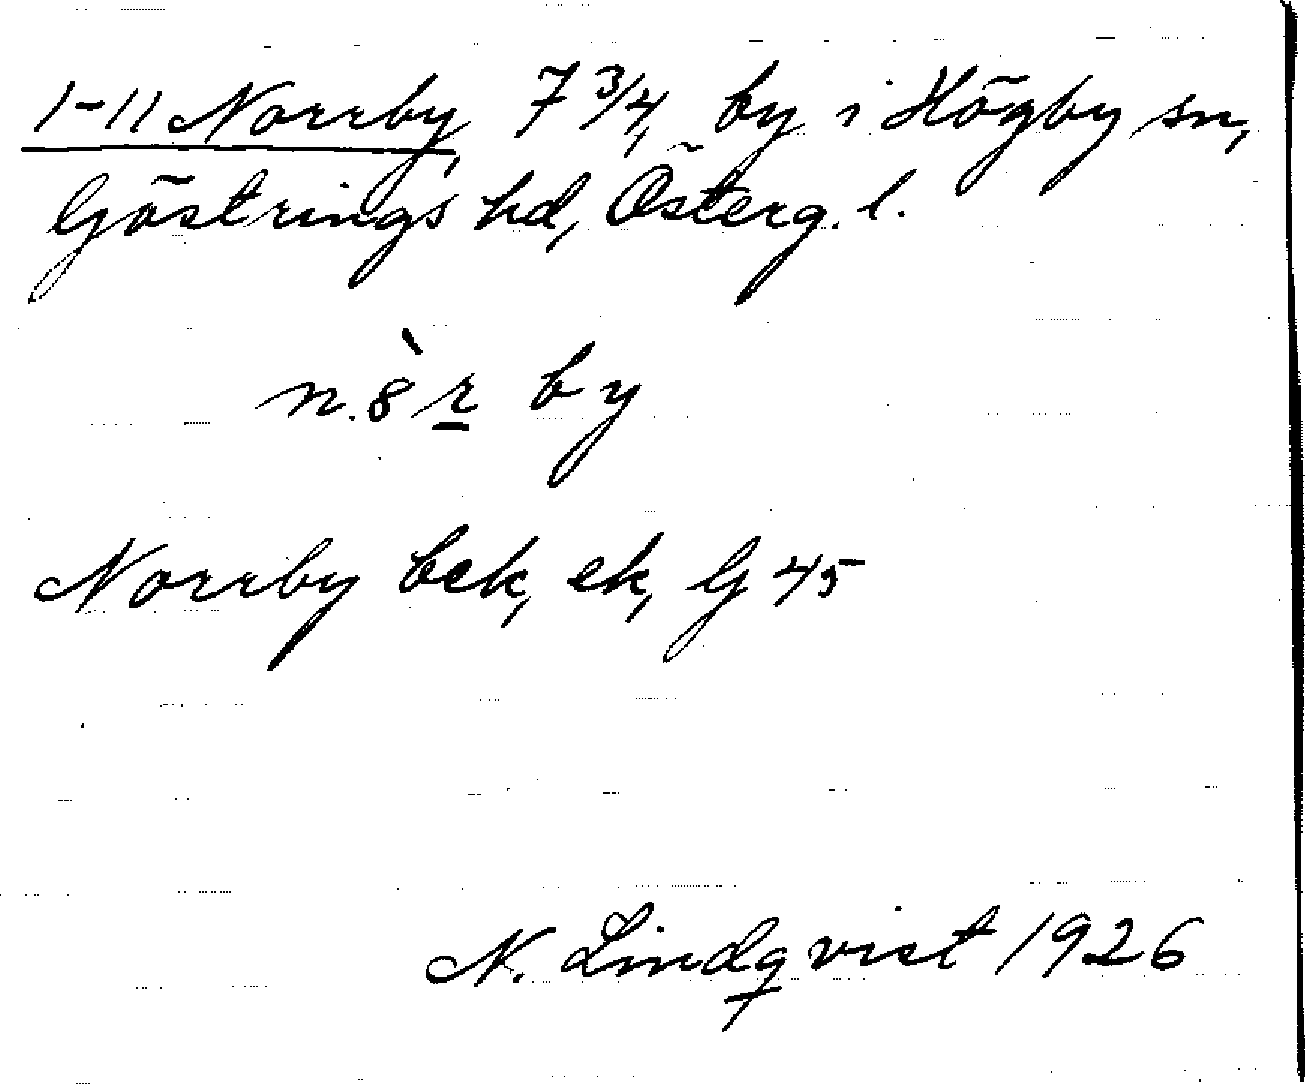 1-11 Norrby, 7 3/4, by i Högby sn,
Göstrings hd, Österg. l.
n.8̀r̲ by
Norrby bek, ek, G 45
N. Lindqvist 1926